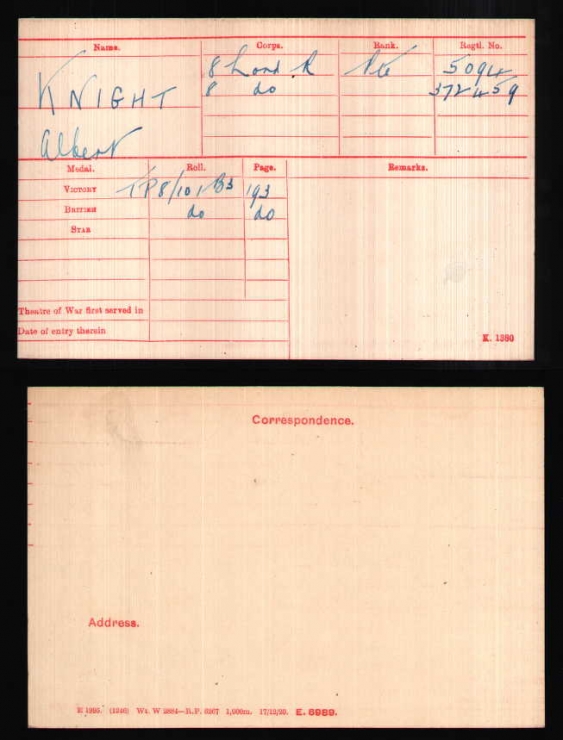 Name. Corps. Rank. Regtl. No.
KNIGHT 8 Lond. R Pte 5094
8 do 372459
Albert
Medal. Roll. Page. Remarks.
VICTORY TP8/101 B3 193
BRITISH do do
STAR
Theatre of War first served in
Date of entry therein
K. 1380
Correspondence.
Address.
(1346) Wt. W 1,000m. 17/12/20. E. 6989.